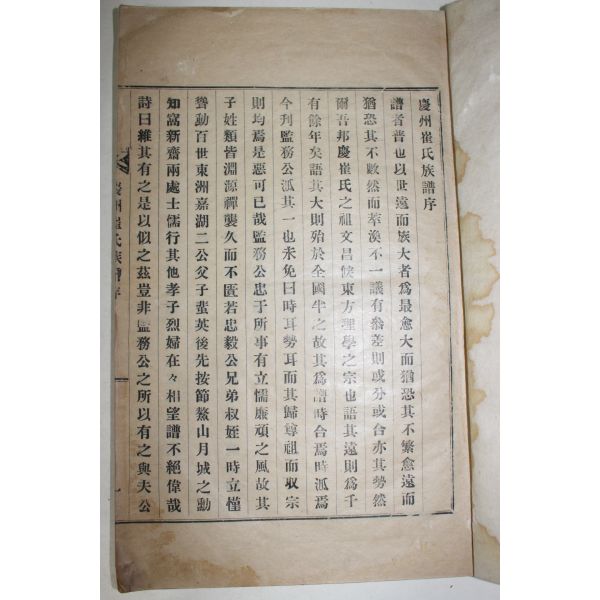 慶州崔氏族譜序
譜者普也以世遠而族大者爲最愈大而猶恐其不繁愈遠而
猶恐其不敷然而萃渙不一議有叅差則或分或合亦其勢然
爾吾邦慶崔氏之祖文昌侯東方理學之宗也語其遠則爲千
有餘年矣語其大則殆於全國半之故其爲譜時合焉時派焉
今刊監務公派其一也未免曰時耳勢耳而其歸尊祖而収宗
則均焉是惡可已哉監務公忠于所事有立懦廉頑之風故其
子姓類皆淵源禪襲久而不匱若忠毅公兄弟叔姪一時立懂
聳動百世東洲嘉湖二公父子蜚英後先按節鰲山月城之勳
知窩新齋兩處士儒行其他孝子烈婦在々相望譜不絕偉哉
詩曰維其有之是以似之茲豈非監務公之所以有之與夫公
慶州崔氏族譜序
一